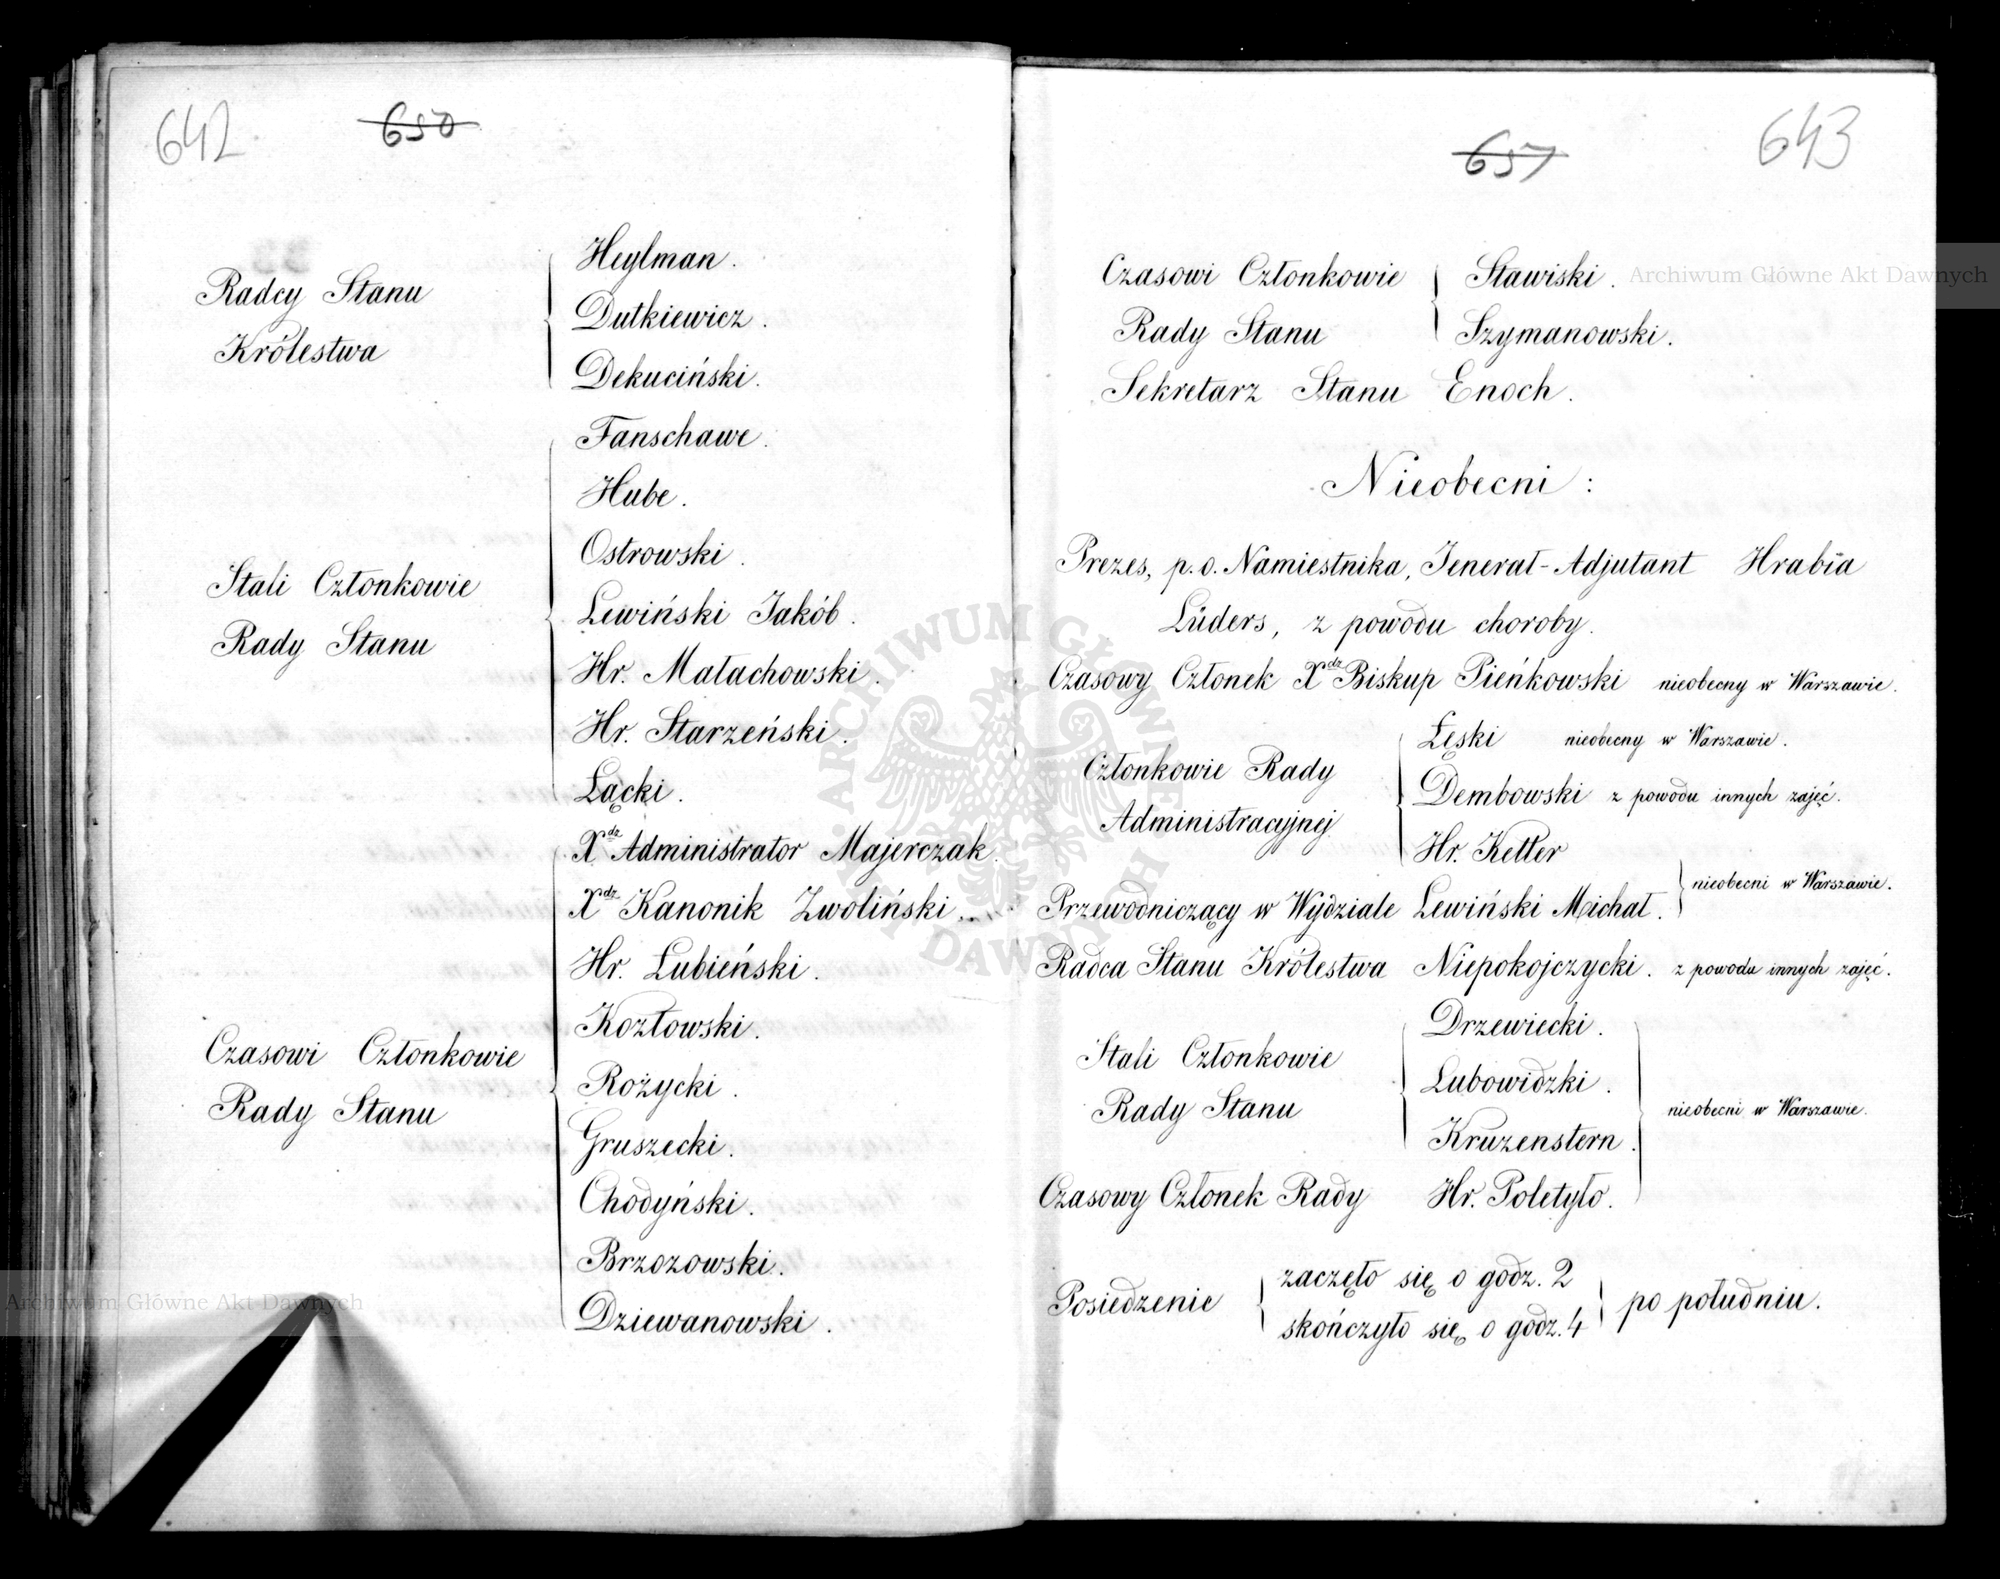 642
650
Radcy Stanu
Królestwa
Heylman.
Dutkiewicz.
Dekuciński.
Stali Członkowie
Rady Stanu
Fanschawe.
Hube.
Ostrowski.
Lewiński Jakób.
Hr. Małachowski.
Hr. Starzeński.
Łącki.
Czasowi Członkowie
Rady Stanu
Xdz Administrator Majerczak.
Xdz Kanonik Zwoliński.
Hr. Łubieński.
Kozłowski.
Rożycki.
Gruszecki.
Chodyński.
Brzozowski.
Dziewanowski.
657
643
Czasowi Członkowie
Rady Stanu
Stawiski.
Szymanowski.
Sekretarz Stanu Enoch.
Nieobecni:
Prezes, p.o. Namiestnika, Jenerał-Adjutant Hrabia
Lüders, z powodu choroby.
Czasowy Członek Xdz Biskup Pieńkowski nieobecny w Warszawie.
Członkowie Rady
Administracyjnej
Łęski nieobecny w Warszawie.
Dembowski z powodu innych zajęć.
Hr. Keller
Przewodniczący w Wydziale Lewiński Michał. nieobecni w Warszawie.
Radca Stanu Królestwa Niepokojczycki. z powodu innych zajęć.
Stali Członkowie
Rady Stanu
Drzewiecki.
Łubowidzki.
Kruzenstern.
Czasowy Członek Rady Hr. Poletyło.
nieobecni w Warszawie.
Posiedzenie
zaczęło się o godz. 2
skończyło się o godz. 4
po południu.
Archiwum Główne Akt Dawnych
Archiwum Główne Akt Dawnych
ARCHIWUM GŁÓWNE AKT DAWNYCH